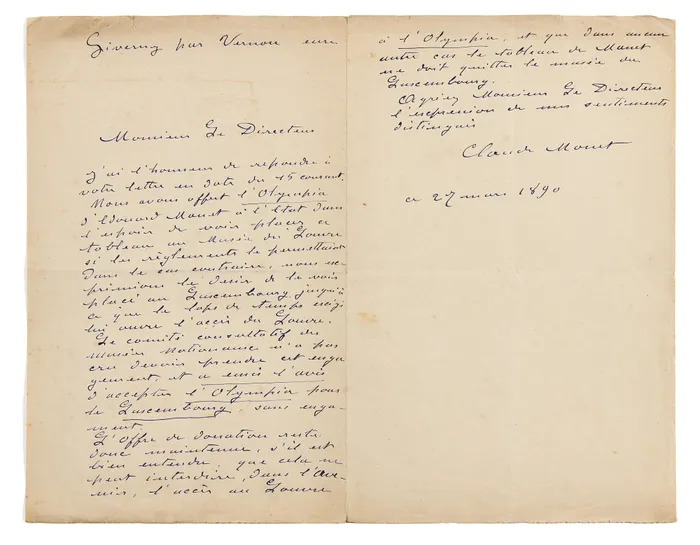 Giverny par Vernon eure
Monsieur Le Directeur
J'ai l'honneur de repondre à
votre lettre en date du 15 courant.
Nous avons offert l'Olympia
d'Edouard Manet à l'Etat dans
l'espoir de voir placer ce
tableau au Musée du Louvre
si les règlements le permettaient
Dans le cas contraire, nous ex-
primions le désir de le voir
placé au Luxembourg jusqu'à
ce que le laps de temps exigé
lui ouvre l'accès du Louvre.
Le comité consultatif des
musées Nationaux n'a pas
cru devoir prendre cet enga
gement, et a émis l'avis
d'accepter l'Olympia pour
le Luxembourg, sans enga-
ment.
L'Offre de donation reste
donc maintenue, s'il est
bien entendu, que cela ne
peut interdire, dans l'ave-
nir, l'accès au Louvre
à l'Olympia, et que dans aucun
autre cas le tableau de Manet
ne doit quitter le musée du
Luxembourg.
Agréez Monsieur Le Directeur
l'expression de mes sentiments
distingués
Claude Monet
ce 27 mars 1890